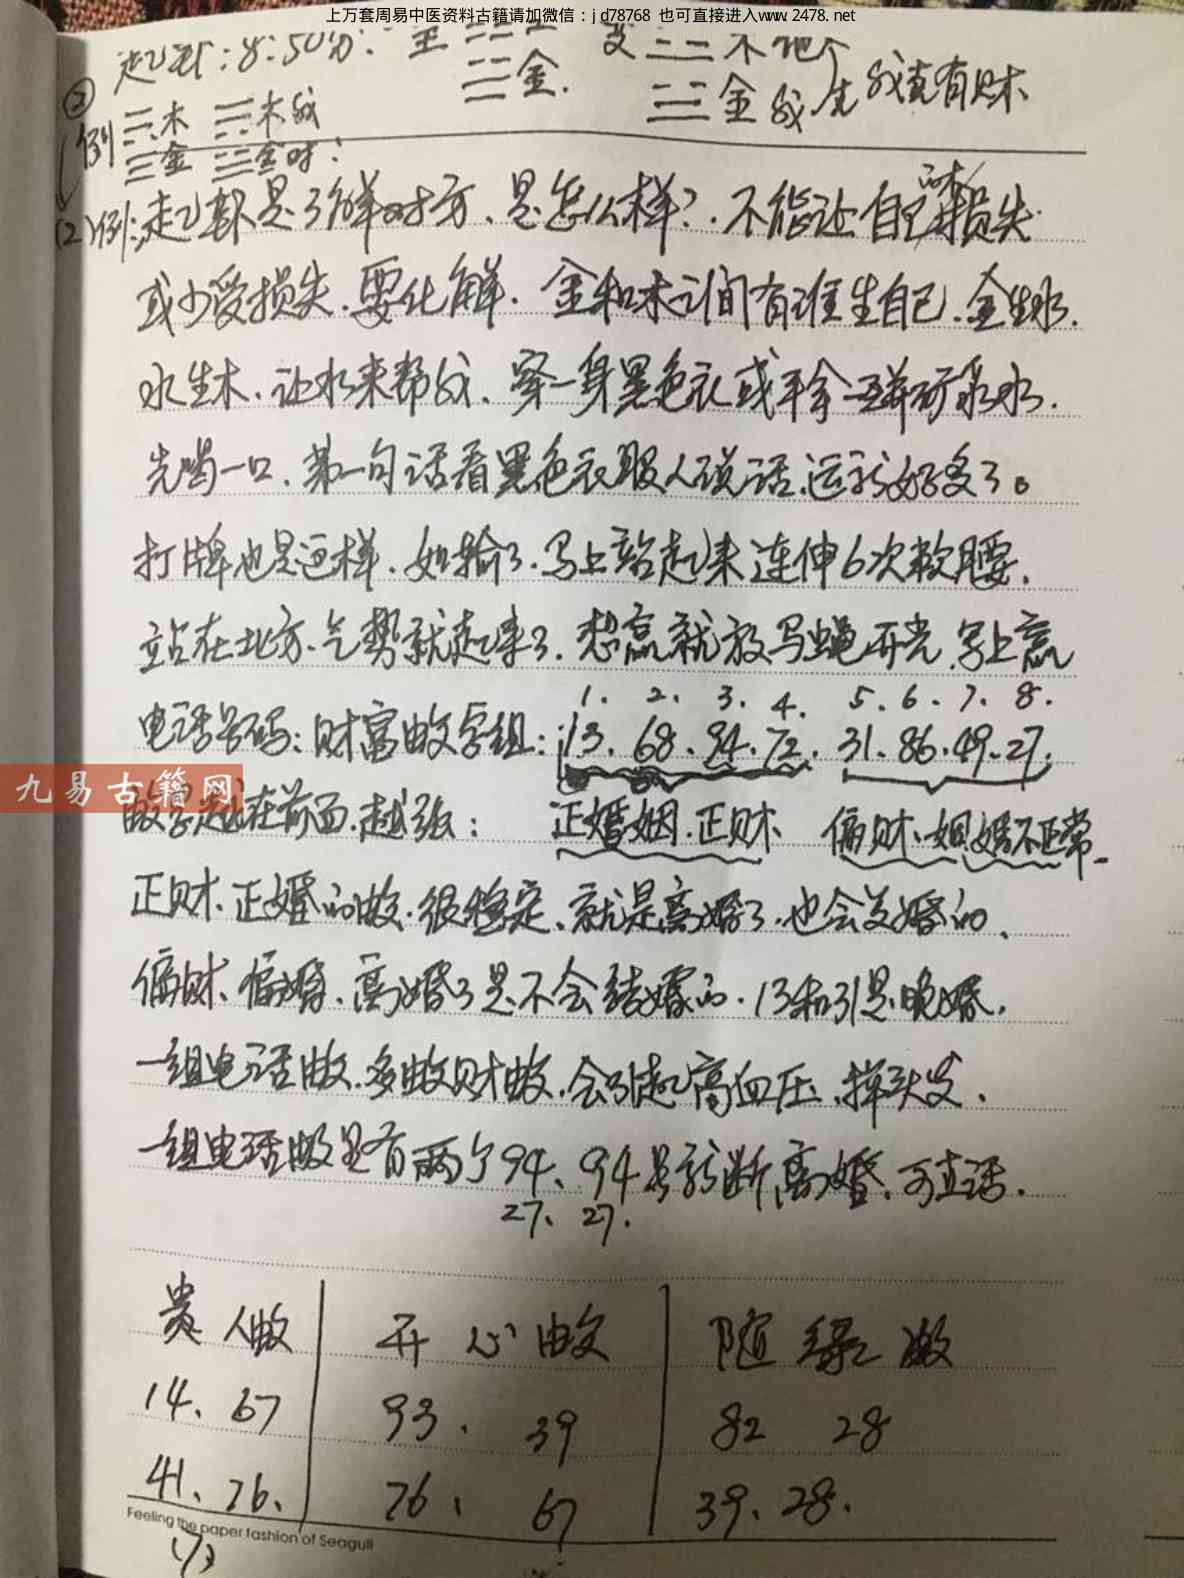 上万套周易中医资料古籍请加微信：jd78768 也可直接进入www.2478.net
8:50分:
金. 金 我 生 我克有财
② 例 木 木我
金 金对:
(2)例:起卦是了解对方、是怎么样?.不能让自己损失
或少受损失.要化解. 金和木之间有谁生自己.金生水.
水生木.让水来帮我、穿一身黑色衣或手拿一瓶矿泉水.
先喝一口、第一句话看黑色衣服人说话.运就好多了。
打牌也是这样.如输了.马上站起来连伸6次软腰.
站在北方、气势就起来了.想赢就放马蝇开光.写上赢
1. 2. 3. 4. 5. 6. 7. 8.
电话号码:财富数字组:13. 68. 94. 72. 31. 86. 49. 27.
九易古籍网
数字越在前面.越强: 正婚姻.正财 偏财、姻婚不正常.
正财.正婚的数.很稳定、就是离婚了.也会复婚的、
偏财、偏婚、离婚了是不会结婚的.13和31是晚婚.
一组电话数.多数财数.会引起高血压、掉头发.
一组电话数是有两个94、94号就断离婚.可直话.
27、27.
贵人数 开心数 随缘数
14、67 93、39 82 28
41、76、 76、67 39、28.
Feeling the paper fashion of Seagull